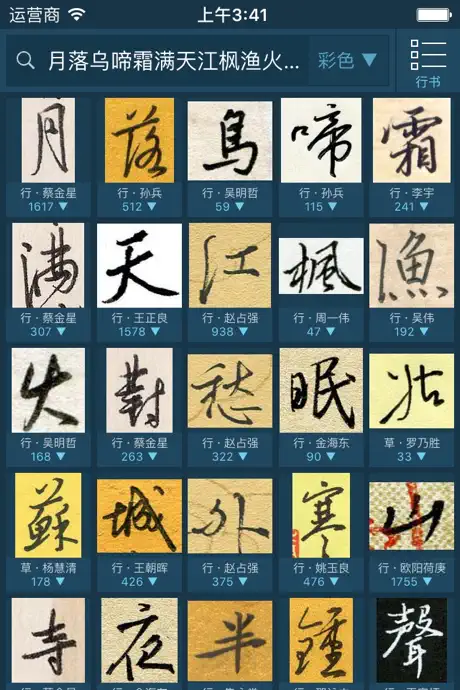 运营商 上午3:41
月落乌啼霜满天江枫渔火... 彩色 ▼ 行书
月 落 烏 啼 霜
行 · 蔡金星 行 · 孙兵 行 · 吴明哲 行 · 孙兵 行 · 李宇
1617 ▼ 512 ▼ 59 ▼ 115 ▼ 241 ▼
满 天 江 楓 漁
行 · 蔡金星 行 · 王正良 行 · 赵占强 行 · 周一伟 行 · 吴伟
307 ▼ 1578 ▼ 938 ▼ 47 ▼ 192 ▼
火 對 愁 眠 姑
行 · 吴明哲 行 · 蔡金星 行 · 赵占强 行 · 金海东 草 · 罗乃胜
168 ▼ 263 ▼ 322 ▼ 90 ▼ 33 ▼
蘇 城 外 寒 山
草 · 杨慧清 行 · 王朝晖 行 · 赵占强 行 · 姚玉良 行 · 欧阳荷庚
178 ▼ 426 ▼ 375 ▼ 476 ▼ 1755 ▼
寺 夜 半 鍾 聲